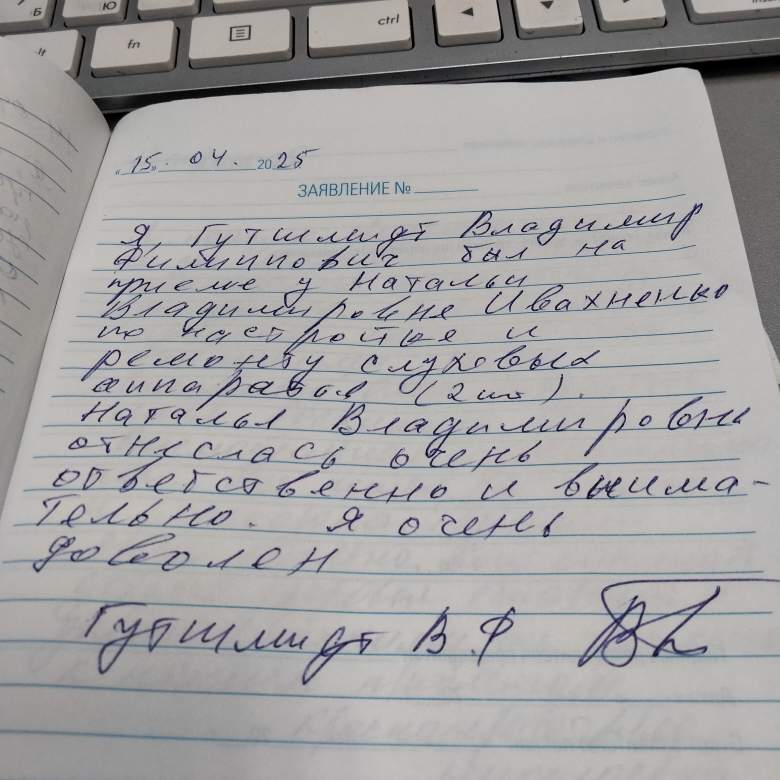 Б
Ю
ctrl
fn
"15". 04. 2025
ЗАЯВЛЕНИЕ №
Я, Гутшмидт Владимир
Филиппович был на
приеме у Натальи
Владимировне Ивахненко
по настройке и
ремонту слуховых
аппаратов (2 шт).
Наталья Владимировна
отнеслась очень
ответственно и внима-
тельно. Я очень
доволен
Гутшмидт В.Ф